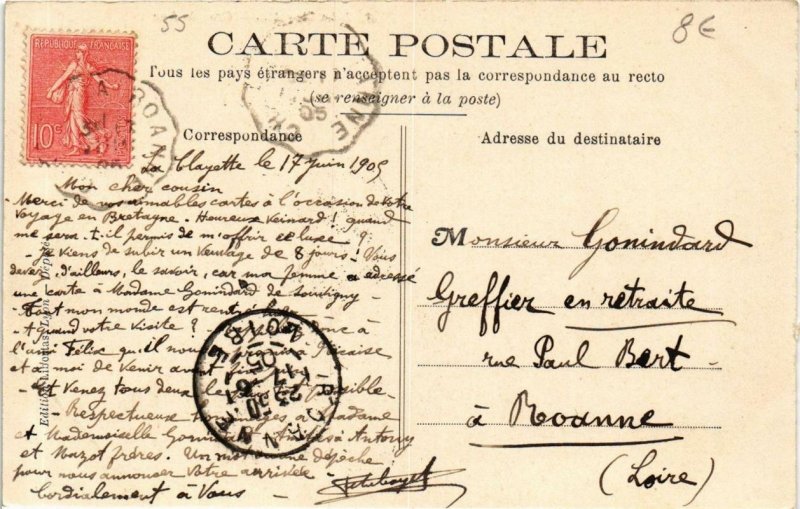 55
8€
CARTE POSTALE
Tous les pays étrangers n'acceptent pas la correspondance au recto
(se renseigner à la poste)
RÉPUBLIQUE FRANÇAISE
10c
Correspondance
Adresse du destinataire
La Clayette le 17 juin 1905
Mon cher cousin
Merci de vos aimables cartes à l'occasion de votre
voyage en Bretagne. Heureux veinard ! quand
me sera-t-il permis de m'offrir ce luxe ?
Je viens de subir un veuvage de 8 jours. Vous
devez, d'ailleurs, le savoir, car ma femme a adressé
une carte à Madame Gonindard de Souvigny.
Tout mon monde est rentré
A quand votre visite ? donc à
l'ami Félix qu'il nous
et à moi de venir avant
Et venez tous deux le possible.
Respectueux à Madame
et Mademoiselle à Antony
et Mazot frères. Un mot dépêche
pour nous annoncer votre arrivée.
Cordialement à Vous
Monsieur Gonindard
Greffier en retraite
rue Paul Bert
à Roanne
(Loire)
ROANNE
LOIRE
17
05